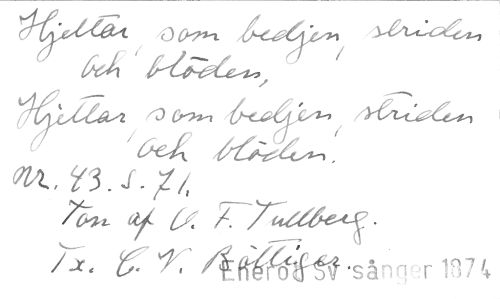 Hjeltar, som bedjen, striden
och blöden,
Hjeltar, som bedjen, striden
och blöden.
Nr. 43. S. 71.
Ton af O. F. Tullberg.
Tx. C. V. Böttiger.
Eneroc Sv sånger 1874